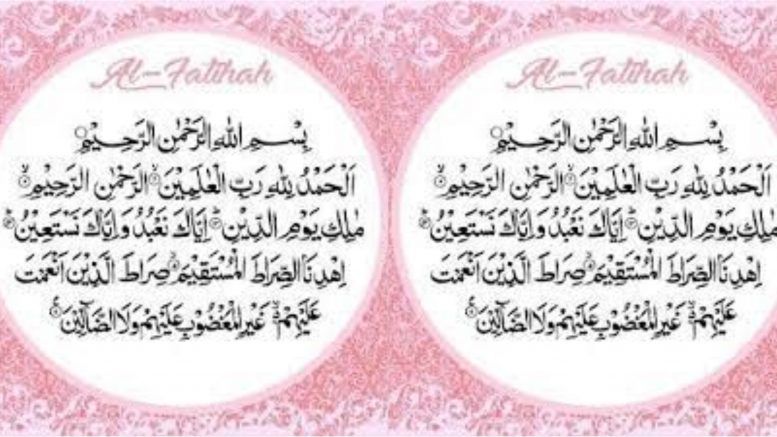 Al-Fatihah
بِسْمِ اللهِ الرَّحْمٰنِ الرَّحِيْمِ
اَلْحَمْدُ لِلّٰهِ رَبِّ الْعٰلَمِيْنَ الرَّحْمٰنِ الرَّحِيْمِ
مٰلِكِ يَوْمِ الدِّيْنِ اِيَّاكَ نَعْبُدُ وَاِيَّاكَ نَسْتَعِيْنُ
اِهْدِنَا الصِّرَاطَ الْمُسْتَقِيْمَ صِرَاطَ الَّذِيْنَ اَنْعَمْتَ
عَلَيْهِمْ غَيْرِ الْمَغْضُوْبِ عَلَيْهِمْ وَلَا الضَّآلِّيْنَ
Al-Fatihah
بِسْمِ اللهِ الرَّحْمٰنِ الرَّحِيْمِ
اَلْحَمْدُ لِلّٰهِ رَبِّ الْعٰلَمِيْنَ الرَّحْمٰنِ الرَّحِيْمِ
مٰلِكِ يَوْمِ الدِّيْنِ اِيَّاكَ نَعْبُدُ وَاِيَّاكَ نَسْتَعِيْنُ
اِهْدِنَا الصِّرَاطَ الْمُسْتَقِيْمَ صِرَاطَ الَّذِيْنَ اَنْعَمْتَ
عَلَيْهِمْ غَيْرِ الْمَغْضُوْبِ عَلَيْهِمْ وَلَا الضَّآلِّيْنَ